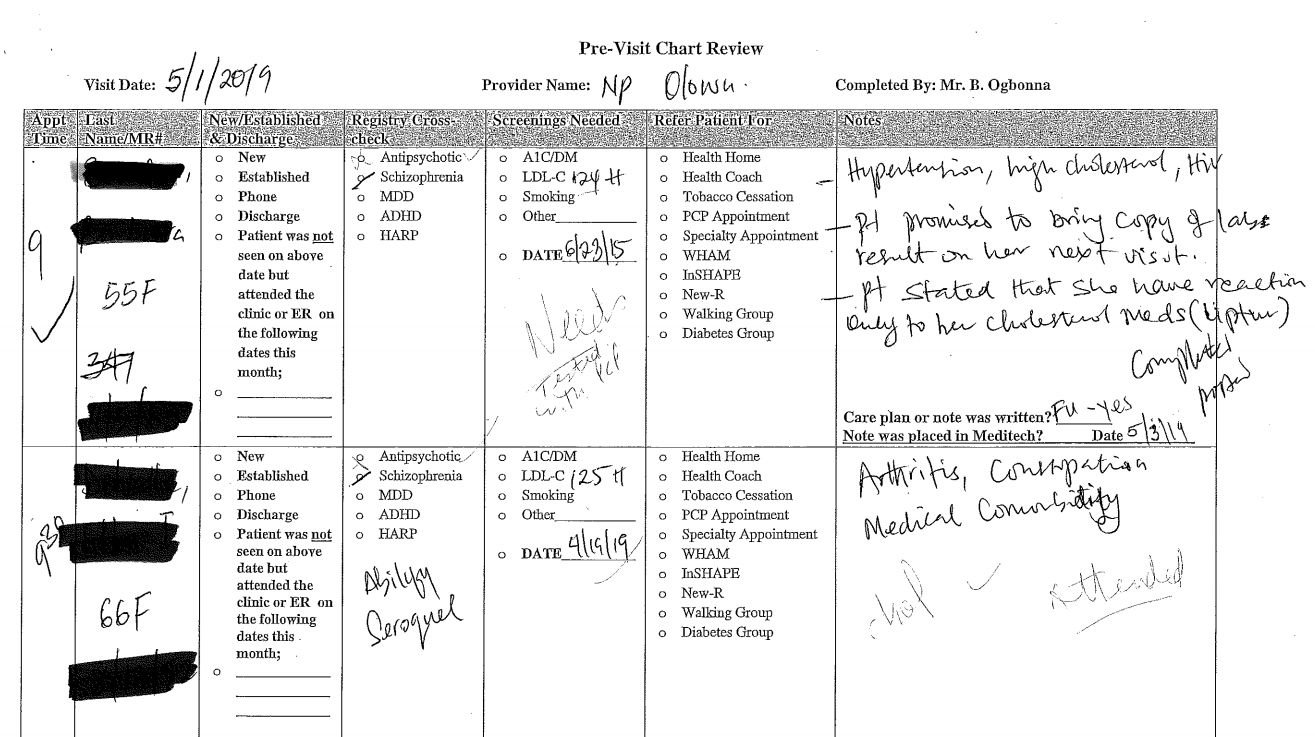 Pre-Visit Chart Review
Visit Date: 5/1/2019 Provider Name: NP Completed By: Mr. B. Ogbonna
Appt Time Last Name/MR# New/Established & Discharge Registry Cross-check Screenings Needed Refer Patient For Notes
9
55F
347
o New
o Established
o Phone
o Discharge
o Patient was not
seen on above
date but
attended the
clinic or ER on
the following
dates this
month;
o
o Antipsychotic
o Schizophrenia
o MDD
o ADHD
o HARP
o A1C/DM
o LDL-C 124 H
o Smoking
o Other
o DATE 6/23/15
Needs
Tested
with PCP
o Health Home
o Health Coach
o Tobacco Cessation
o PCP Appointment
o Specialty Appointment
o WHAM
o InSHAPE
o New-R
o Walking Group
o Diabetes Group
– Hypertention, high cholesterol, HIV
– pt promised to bring copy of labs
result on her next visit.
– pt stated that she have reaction
only to her cholesterol meds (
Completed
Care plan or note was written? FU - yes
Note was placed in Meditech? Date 5/3/19
930
66F
o New
o Established
o Phone
o Discharge
o Patient was not
seen on above
date but
attended the
clinic or ER on
the following
dates this
month;
o
o Antipsychotic
o Schizophrenia
o MDD
o ADHD
o HARP
Abilify
Seroquel
o A1C/DM
o LDL-C 125 H
o Smoking
o Other
o DATE 4/19/19
o Health Home
o Health Coach
o Tobacco Cessation
o PCP Appointment
o Specialty Appointment
o WHAM
o InSHAPE
o New-R
o Walking Group
o Diabetes Group
Arthritis, Constipation
Medical Comorbidity
chol
Attended